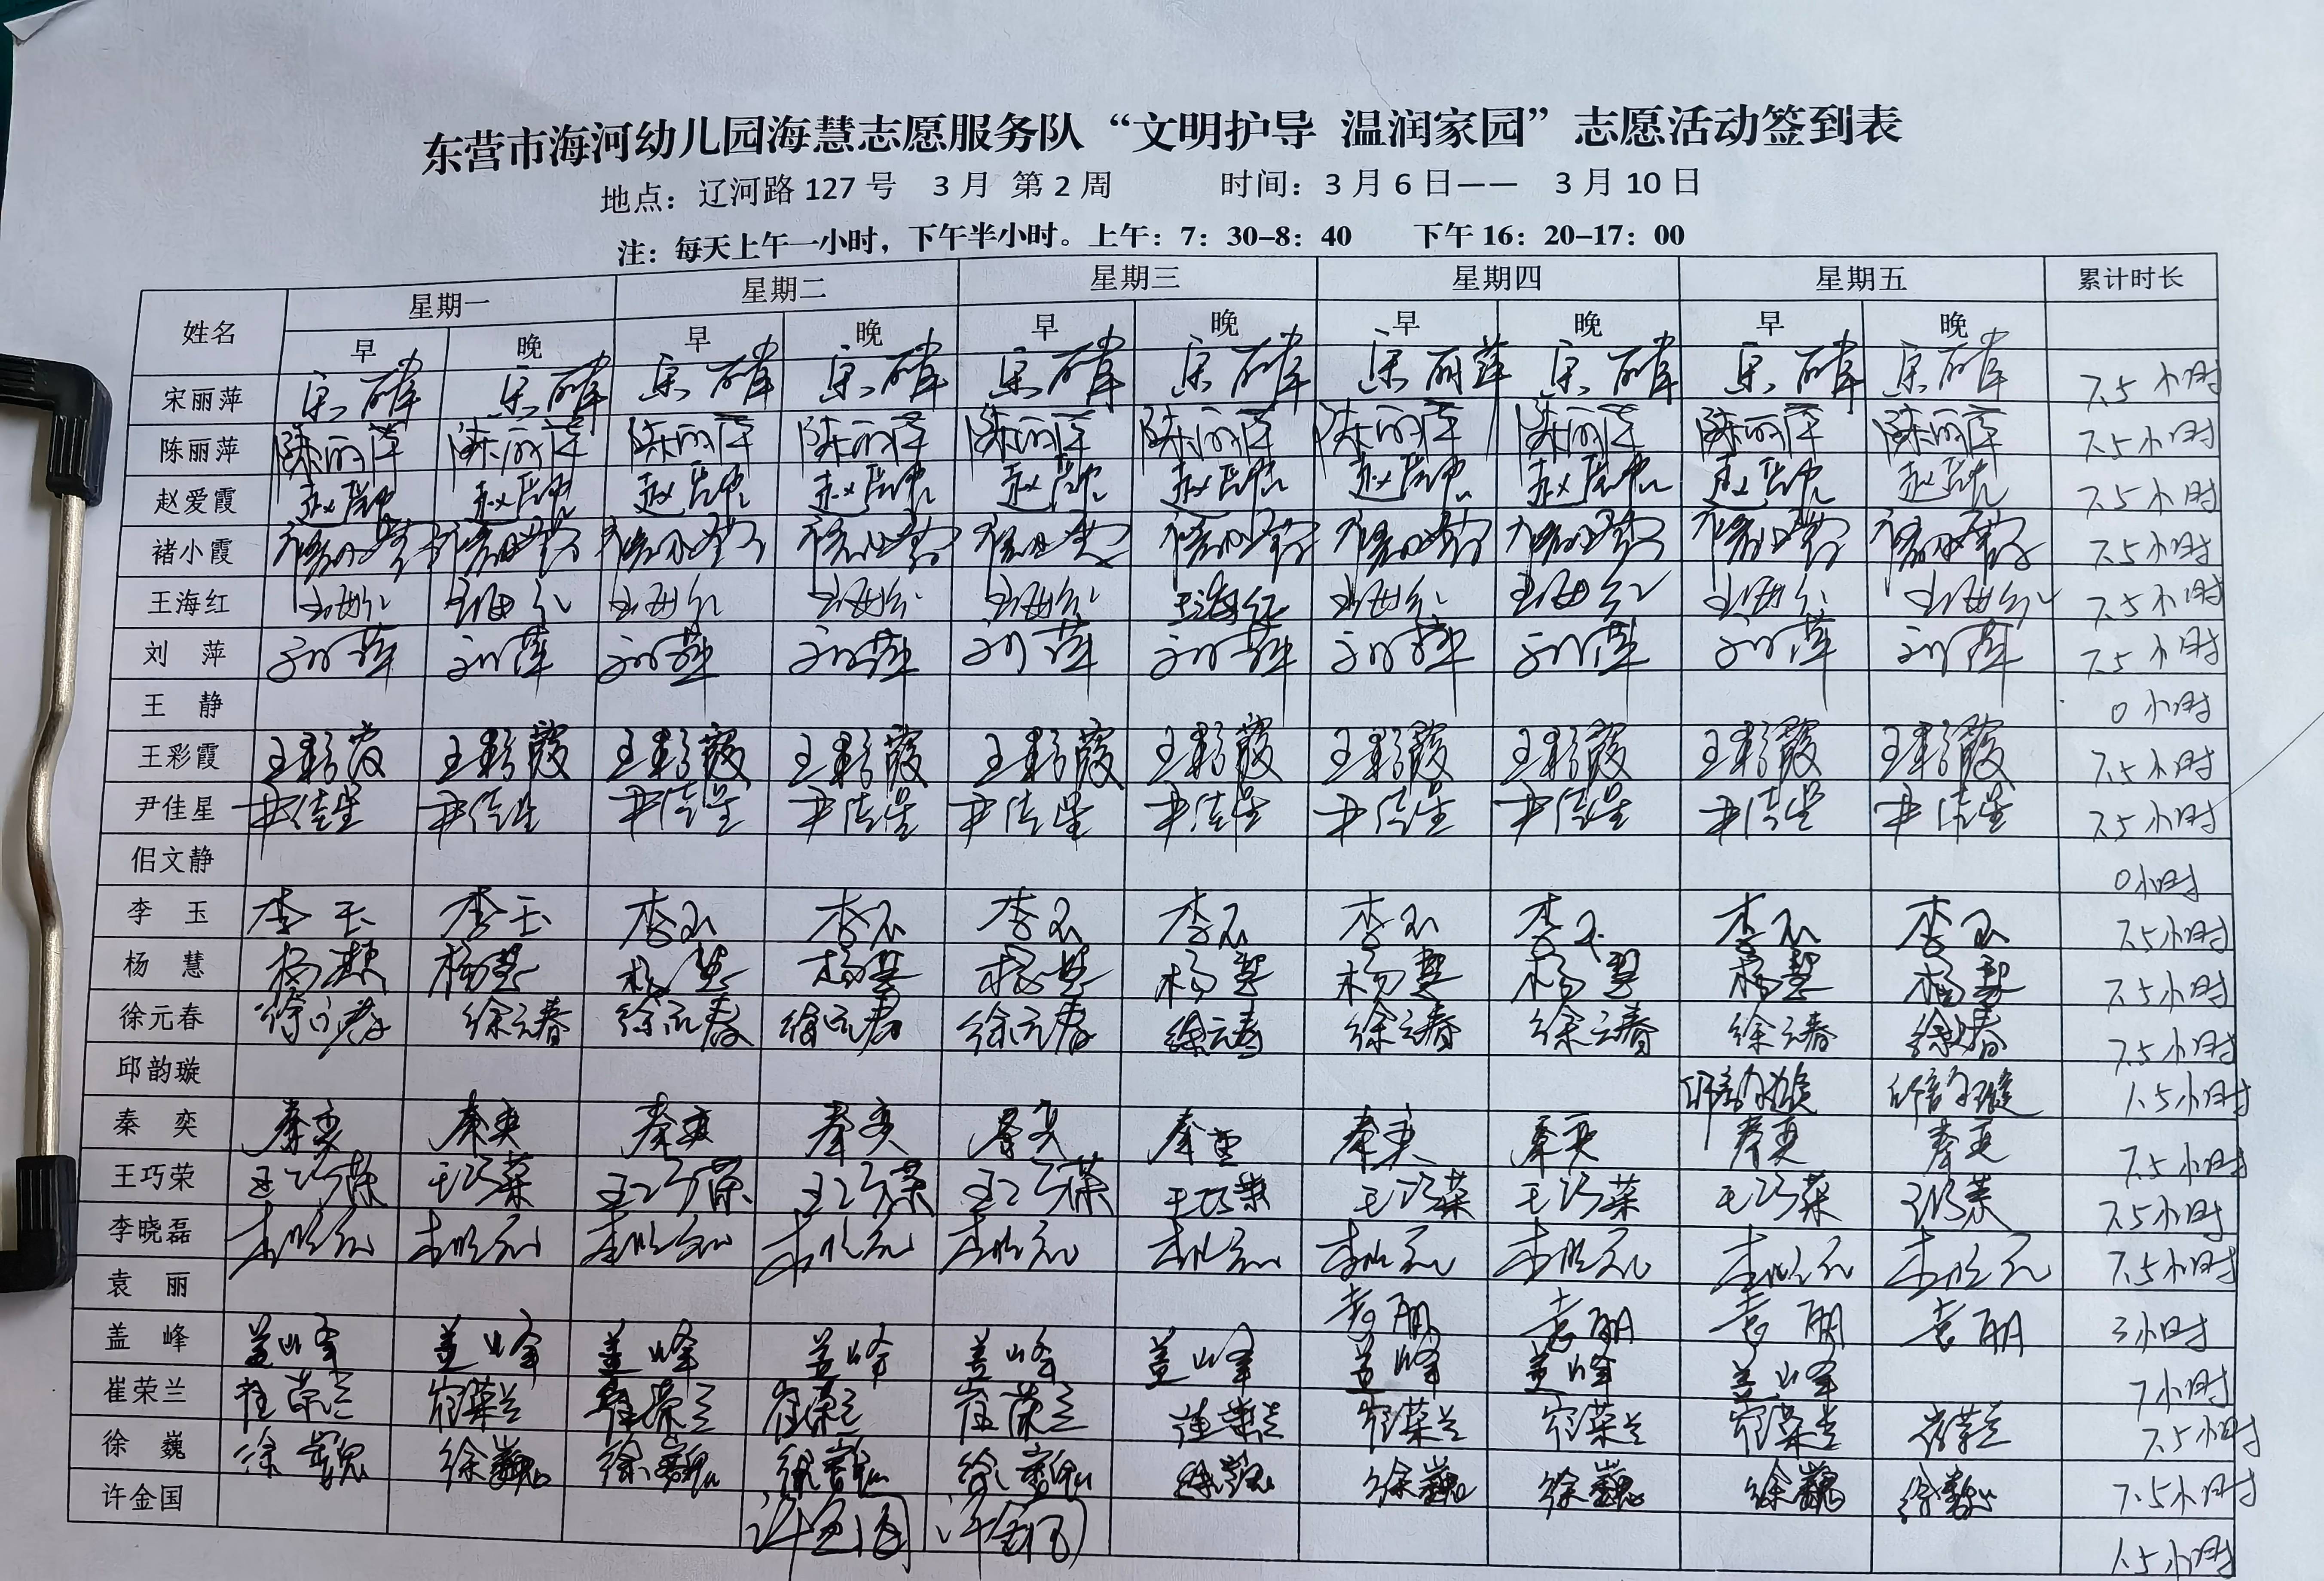 东营市海河幼儿园海慧志愿服务队“文明护导 温润家园”志愿活动签到表
地点：辽河路 127 号 3 月 第 2 周 时间：3 月 6 日—— 3 月 10 日
注：每天上午一小时，下午半小时。上午：7：30-8：40 下午 16：20-17：00
姓名 星期一 星期二 星期三 星期四 星期五 累计时长
早 晚 早 晚 早 晚 早 晚 早 晚
宋丽萍 宋丽萍 宋丽萍 宋丽萍 宋丽萍 宋丽萍 宋丽萍 宋丽萍 宋丽萍 宋丽萍 宋丽萍 7.5小时
陈丽萍 陈丽萍 陈丽萍 陈丽萍 陈丽萍 陈丽萍 陈丽萍 陈丽萍 陈丽萍 陈丽萍 陈丽萍 7.5小时
赵爱霞 赵爱霞 赵爱霞 赵爱霞 赵爱霞 赵爱霞 赵爱霞 赵爱霞 赵爱霞 赵爱霞 赵爱霞 7.5小时
褚小霞 褚小霞 褚小霞 褚小霞 褚小霞 褚小霞 褚小霞 褚小霞 褚小霞 褚小霞 褚小霞 7.5小时
王海红 王海红 王海红 王海红 王海红 王海红 王海红 王海红 王海红 王海红 王海红 7.5小时
刘 萍 刘萍 刘萍 刘萍 刘萍 刘萍 刘萍 刘萍 刘萍 刘萍 刘萍 7.5小时
王 静 0小时
王彩霞 王彩霞 王彩霞 王彩霞 王彩霞 王彩霞 王彩霞 王彩霞 王彩霞 王彩霞 王彩霞 7.5小时
尹佳星 尹佳星 尹佳星 尹佳星 尹佳星 尹佳星 尹佳星 尹佳星 尹佳星 尹佳星 尹佳星 7.5小时
佀文静 0小时
李 玉 李玉 李玉 李玉 李玉 李玉 李玉 李玉 李玉 李玉 李玉 7.5小时
杨 慧 杨慧 杨慧 杨慧 杨慧 杨慧 杨慧 杨慧 杨慧 杨慧 杨慧 7.5小时
徐元春 徐元春 徐元春 徐元春 徐元春 徐元春 徐元春 徐元春 徐元春 徐元春 徐元春 7.5小时
邱韵璇 邱韵璇 邱韵璇 1.5小时
秦 奕 秦奕 秦奕 秦奕 秦奕 秦奕 秦奕 秦奕 秦奕 秦奕 秦奕 7.5小时
王巧荣 王巧荣 王巧荣 王巧荣 王巧荣 王巧荣 王巧荣 王巧荣 王巧荣 王巧荣 王巧荣 7.5小时
李晓磊 李晓磊 李晓磊 李晓磊 李晓磊 李晓磊 李晓磊 李晓磊 李晓磊 李晓磊 李晓磊 7.5小时
袁 丽 袁丽 袁丽 袁丽 袁丽 3小时
盖 峰 盖峰 盖峰 盖峰 盖峰 盖峰 盖峰 盖峰 盖峰 盖峰 7小时
崔荣兰 崔荣兰 崔荣兰 崔荣兰 崔荣兰 崔荣兰 崔荣兰 崔荣兰 崔荣兰 崔荣兰 崔荣兰 7.5小时
徐 巍 徐巍 徐巍 徐巍 徐巍 徐巍 徐巍 徐巍 徐巍 徐巍 徐巍 7.5小时
许金国 许金国 许金国 1.5小时